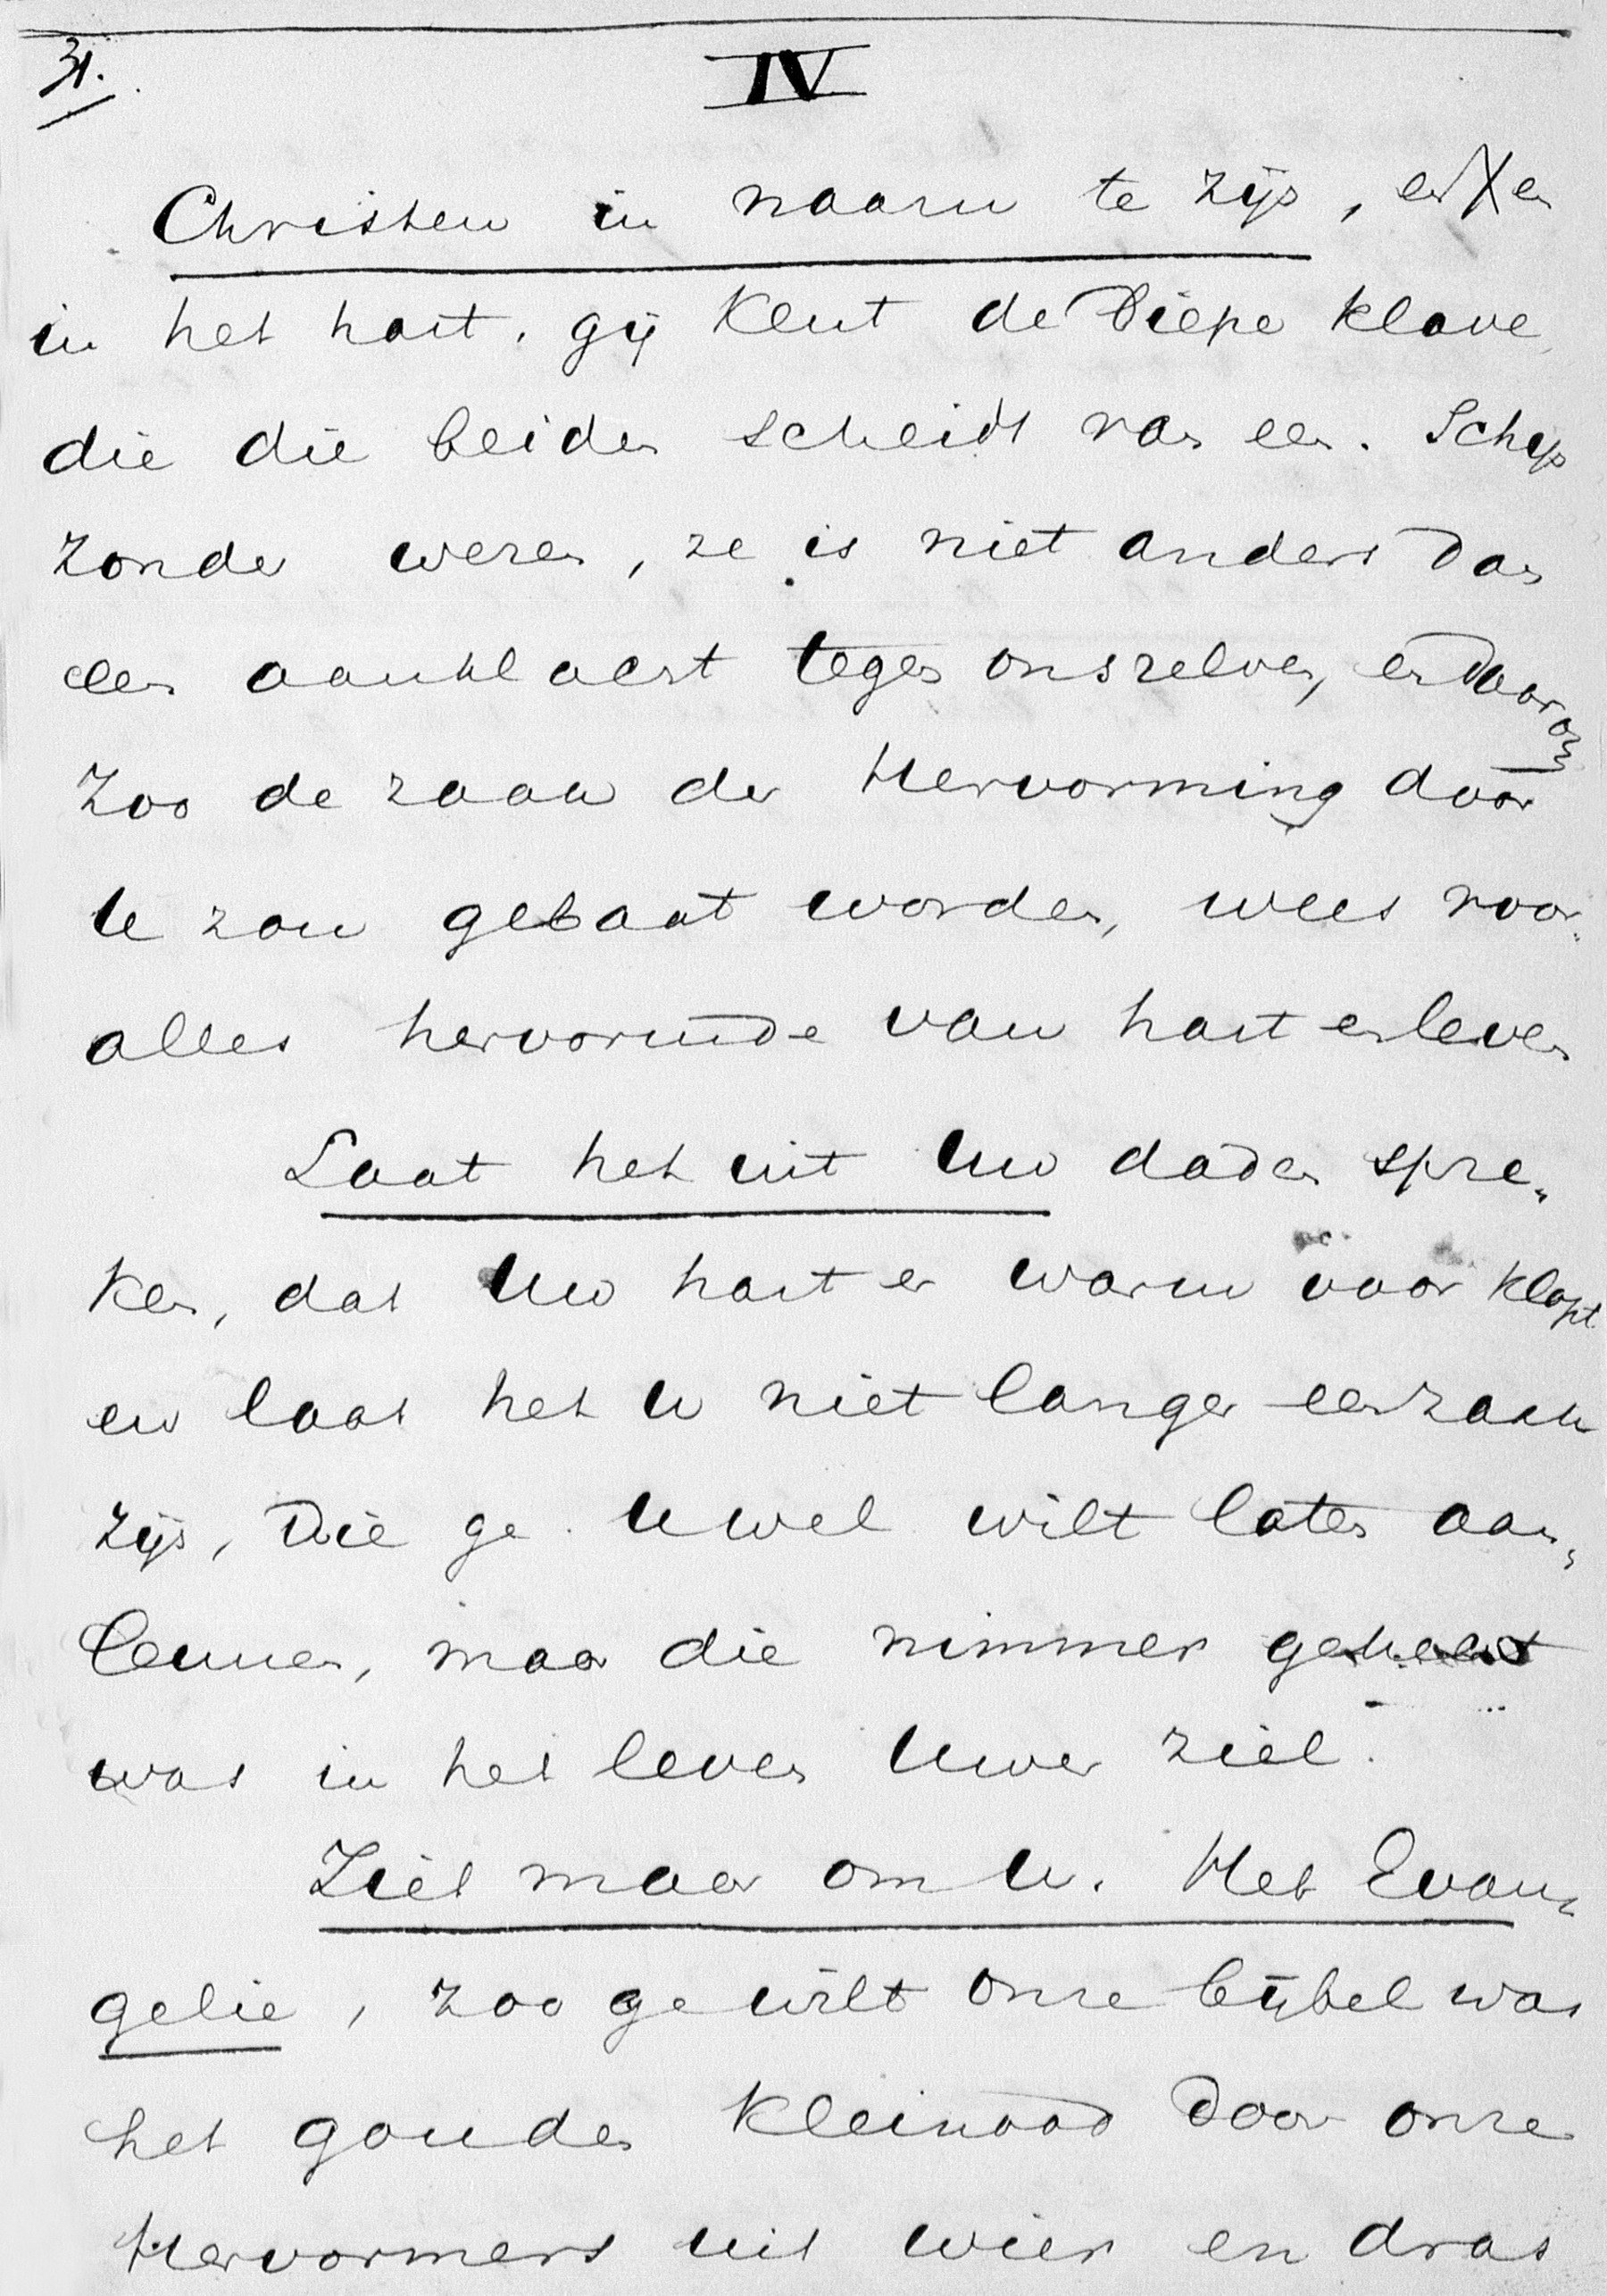 31.
IV
Christen in naam te zijn, en en
in het hart, gij kent de diepe klove
die die beiden scheidt van een. Schijn
zonder wezen, ze is niet anders dan
een aanklacht tegen onszelven, en daarom
zoo de zaak der Hervorming door
U zou gebaat worden, wees voor
alles hervormde van hart en leven
Laat het uit Uw daden spre„
ken, dat Uw hart er warm voor klopt
en laat het U niet langer een zaak
zijn, die ge U wel wilt laten aan„
leunen, maar die nimmer
was in het leven Uwer ziel.
Ziet maar om U. Het Evan„
gelie, zoo ge wilt onze bijbel was
het gouden kleinood door onze
Hervormers uit wier en dras